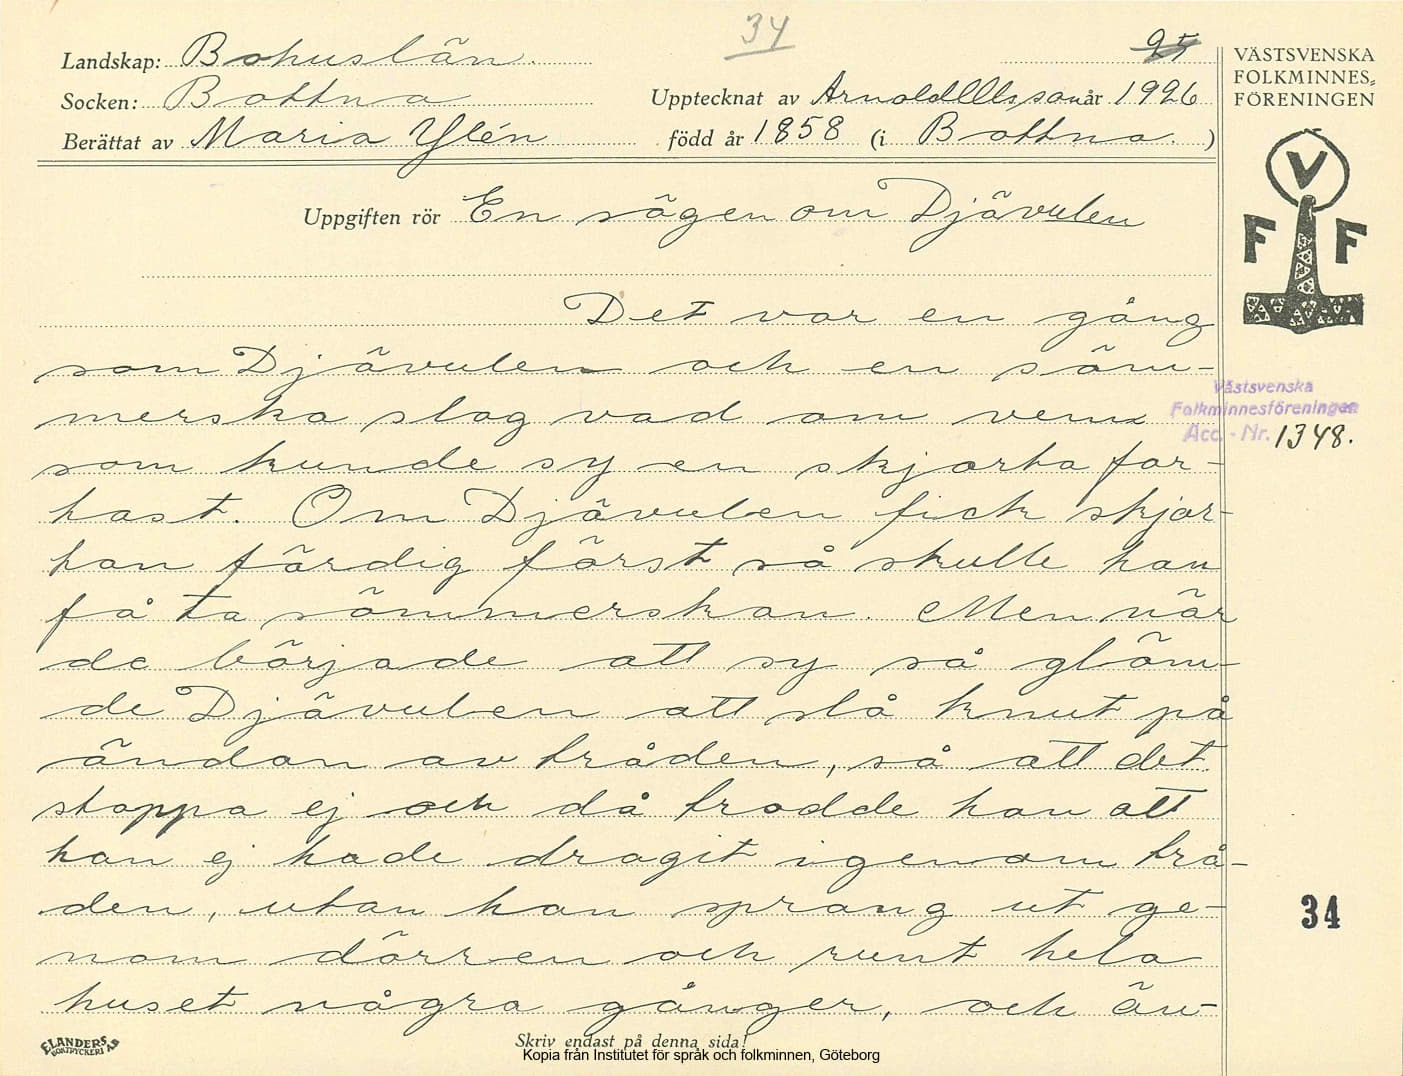 34
25
Landskap: Bohuslän.
Socken: Bottna
Upptecknat av Arnold Olsson år 1926
Berättat av Maria Ylén född år 1858 (i Bottna. )
VÄSTSVENSKA
FOLKMINNES-
FÖRENINGEN
V
F F
Uppgiften rör En sägen om Djävulen
Det var en gång
som Djävulen och en söm-
merska slog vad om vem
som kunde sy en skjorta for-
hast. Om Djävulen fick skjor-
han färdig först så skulle han
få ta sömmerskan. Men när
de började att sy så glöm-
de Djävulen att slå knut på
ändan av tråden, så att det
stoppa ej och då trodde han att
han ej hade dragit igenom trå-
den, utan han sprang ut ge-
nom dörren och runt hela
huset några gånger, och än-
Västsvenska
Folkminnesföreningen
Acc. - Nr. 1348.
34
ELANDERS
BOKTRYCKERI AB
Skriv endast på denna sida!
Kopia från Institutet för språk och folkminnen, Göteborg